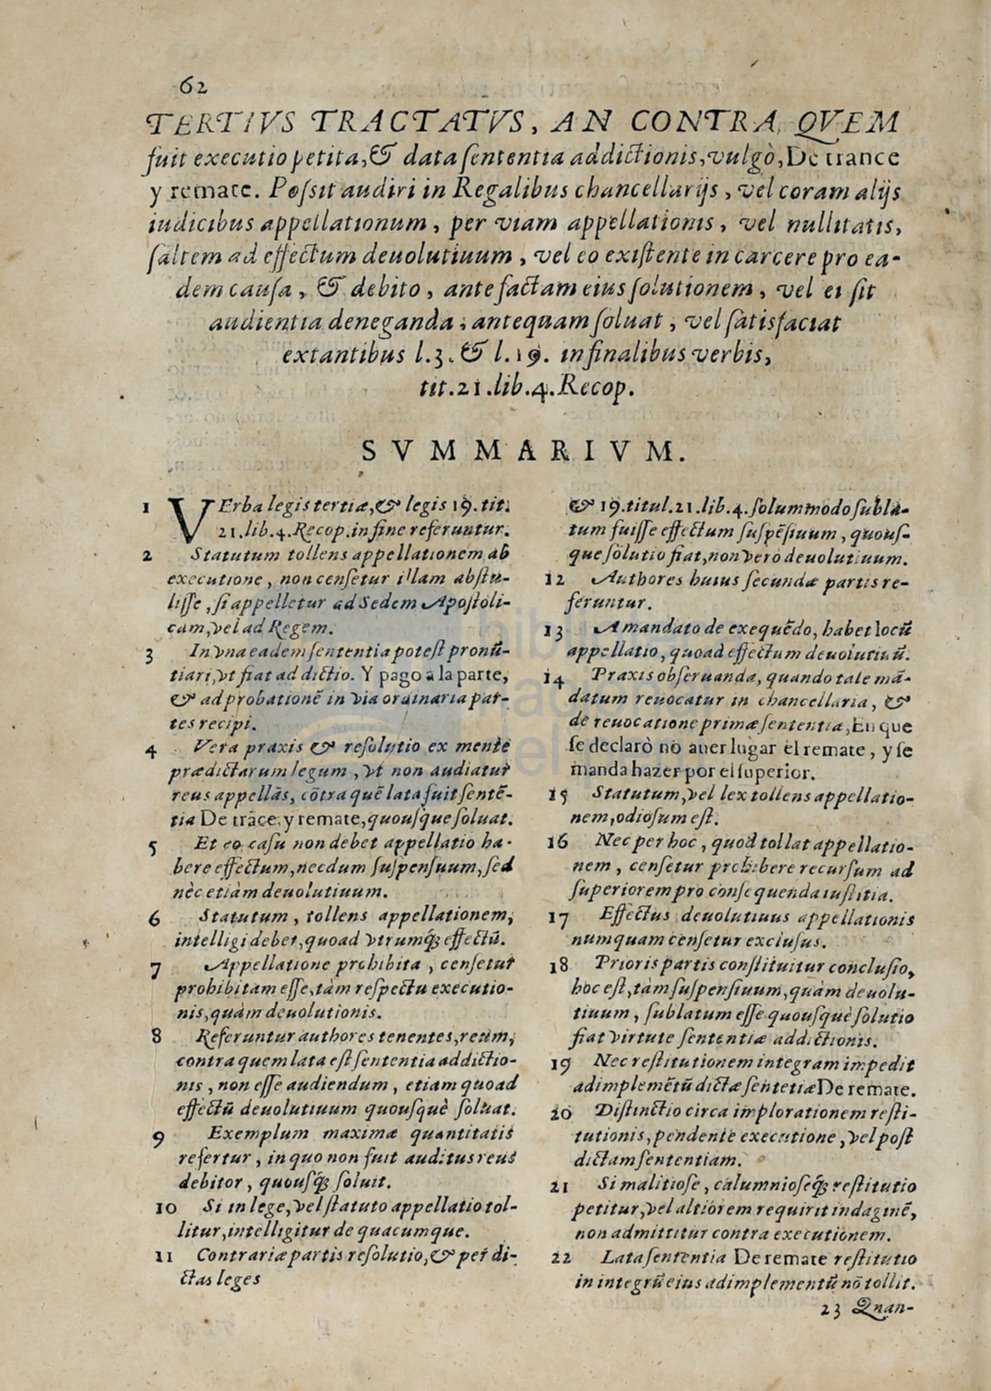 62
TERTIVS TRACTATVS, AN CONTRA, QVEM
fuit executio petita, & data sententia addictionis, vulgò, De trance
y remate. Possit audiri in Regalibus chancellarijs, vel coram alijs
iudicibus appellationum, per viam appellationis, vel nullitatis,
saltem ad effectum deuolutiuum, vel eo existente in carcere pro ea-
dem causa, & debito, ante factam eius solutionem, vel ei sit
audientia deneganda, antequam soluat, vel satisfaciat
extantibus l.3. & l.19. in finalibus verbis,
tit.21.lib.4.Recop.
SVMMARIVM.
1 VErba legis tertiæ, & legis 19. tit.
21.lib.4.Recop.in fine referuntur.
2 Statutum tollens appellationem ab
executione, non censetur illam abstu-
lisse, si appelletur ad Sedem Apostoli-
cam, vel ad Regem.
3 In vna eadem sententia potest pronū-
tiari, vt fiat ad dictio. Y pago a la parte,
& ad probationē in via ordinaria par-
tes recipi.
4 Vera praxis & resolutio ex mente
prædictarum legum, vt non audiatur
reus appellās, cōtra quē lata fuit sentē-
tia De trāce y remate, quousque soluat.
5 Et eo casu non debet appellatio ha-
bere effectum, necdum suspensuum, sed
nèc etiàm deuolutiuum.
6 Statutum, tollens appellationem,
intelligi debet, quoad vtrumq; effectū.
7 Appellatione prohibita, censetur
prohibitam esse, tàm respectu executio-
nis, quàm deuolutionis.
8 Referuntur authores tenentes, reum,
contra quem lata est sententia addictio-
nis, non esse audiendum, etiam quoad
effectū deuolutiuum quousquè soluat.
9 Exemplum maximæ quantitatis
refertur, in quo non fuit auditus reus
debitor, quousq; soluit.
10 Si in lege, vel statuto appellatio tol-
litur, intelligitur de quacumque.
11 Contrariæ partis resolutio, & per di-
ctas leges
& 19. titul.21.lib.4. solummodo subla-
tum fuisse effectum suspēsiuum, quous-
que solutio fiat, non verò deuolutiuum.
12 Authores huius secundæ partis re-
feruntur.
13 A mandato de exequēdo, habet locū
appellatio, quoad effectum deuolutiuū.
14 Praxis obseruanda, quando tale mā-
datum reuocatur in chancellaria, &
de reuocatione primæ sententia, En que
se declarò no auer lugar el remate, y se
manda hazer por el superior.
15 Statutum, vel lex tollens appellatio-
nem, odiosum est.
16 Nec per hoc, quod tollat appellatio-
nem, censetur prohibere recursum ad
superiorem pro consequenda iustitia.
17 Effectus deuolutiuus appellationis
numquam censetur exclusus.
18 Prioris partis constituitur conclusio,
hoc est, tàm suspensiuum, quàm deuolu-
tiuum, sublatum esse quousquè solutio
fiat virtute sententiæ addictionis.
19 Nec restitutionem integram impedit
adimplemētū dictæ sētetiæ De remate.
20 Distinctio circa implorationem resti-
tutionis, pendente executione, vel post
dictam sententiam.
21 Si malitiose, calumnioseq; restitutio
petitur, vel altiorem requirit indaginē,
non admittitur contra executionem.
22 Lata sententia De remate restitutio
in integrū eius adimplementū nō tollit.
23 Quan-